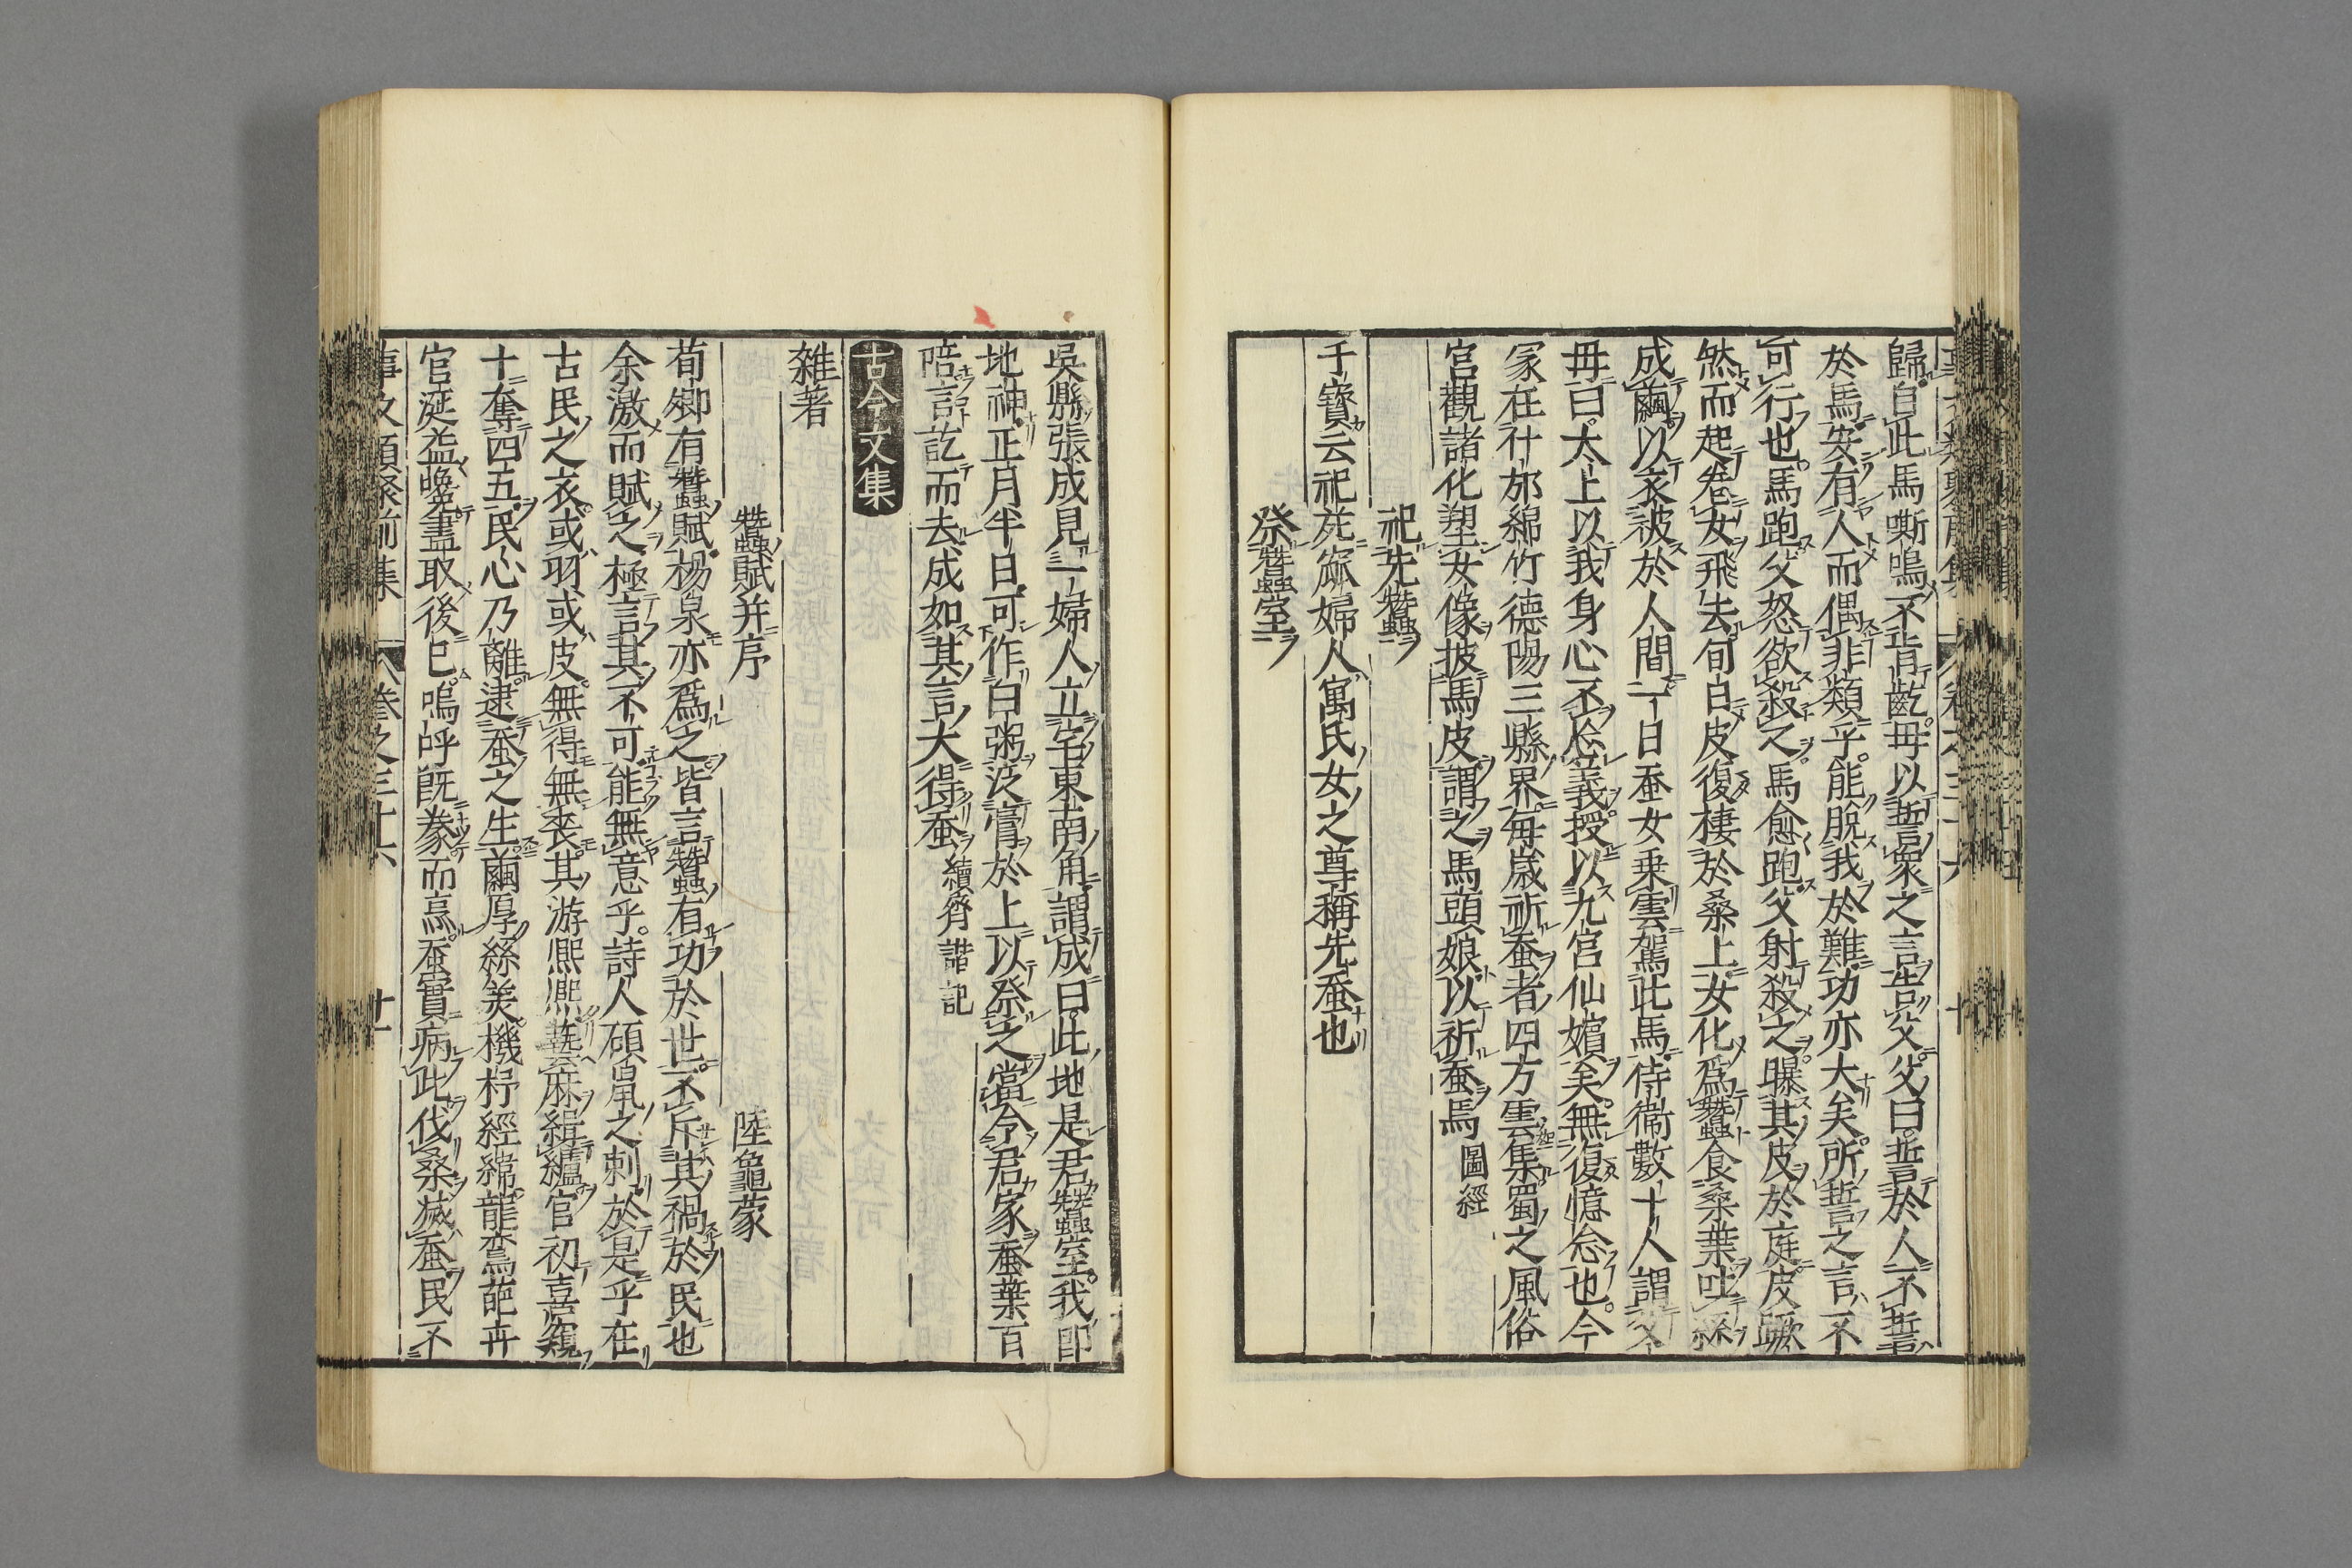 歸自此馬嘶鳴不肯齕母以誓衆之言告父父曰誓於人不誓
於馬安有人而偶非類乎能脫我於難功亦大矣所誓之言不
可行也馬跑父怒欲殺之馬愈跑父射殺之曝其皮於庭皮蹶
然而起卷女飛去旬日皮復棲於桑上女化爲蠶食桑葉吐絲
成繭以衣被於人間一日蚕女乗雲駕此馬侍衞數十人謂父
母曰太上以我身心不忘義授以九宮仙嬪矣無復憶念也今
冢在什邡綿竹德陽三縣界每歲祈蚕者四方雲集蜀之風俗
宮觀諸化塑女像披馬皮謂之馬頭娘以祈蚕焉 圖經
祀先蠶
干寶云祀菀窳婦人寓氏女之尊稱先蚕也
祭蠶室
吳縣張成見一婦人立宅東南角謂成曰此地是君蠶室我即
地神正月半日可作白粥泛膏於上以祭之當令君家蚕葉百
陪言訖而去成如其言大得蚕 續齊諧記
古今文集
雜著
蠶賦并序 陸龜蒙
荀卿有蠶賦楊泉亦爲之皆言蠶有功於世不斥其禍於民也
余激而賦之極言其不可能無意乎詩人碩鼠之刺於是乎在
古民之衣或羽或皮無得無喪其游熙熙藝麻緝纑官初喜窺
十奪四五民心乃離逮蚕之生繭厚絲美機杼經緯龍鸞葩卉
官涎益饞盡取後已嗚呼旣豢而烹蚕實病此伐桑滅蚕民不
事文類聚前集 卷之三十六 十一